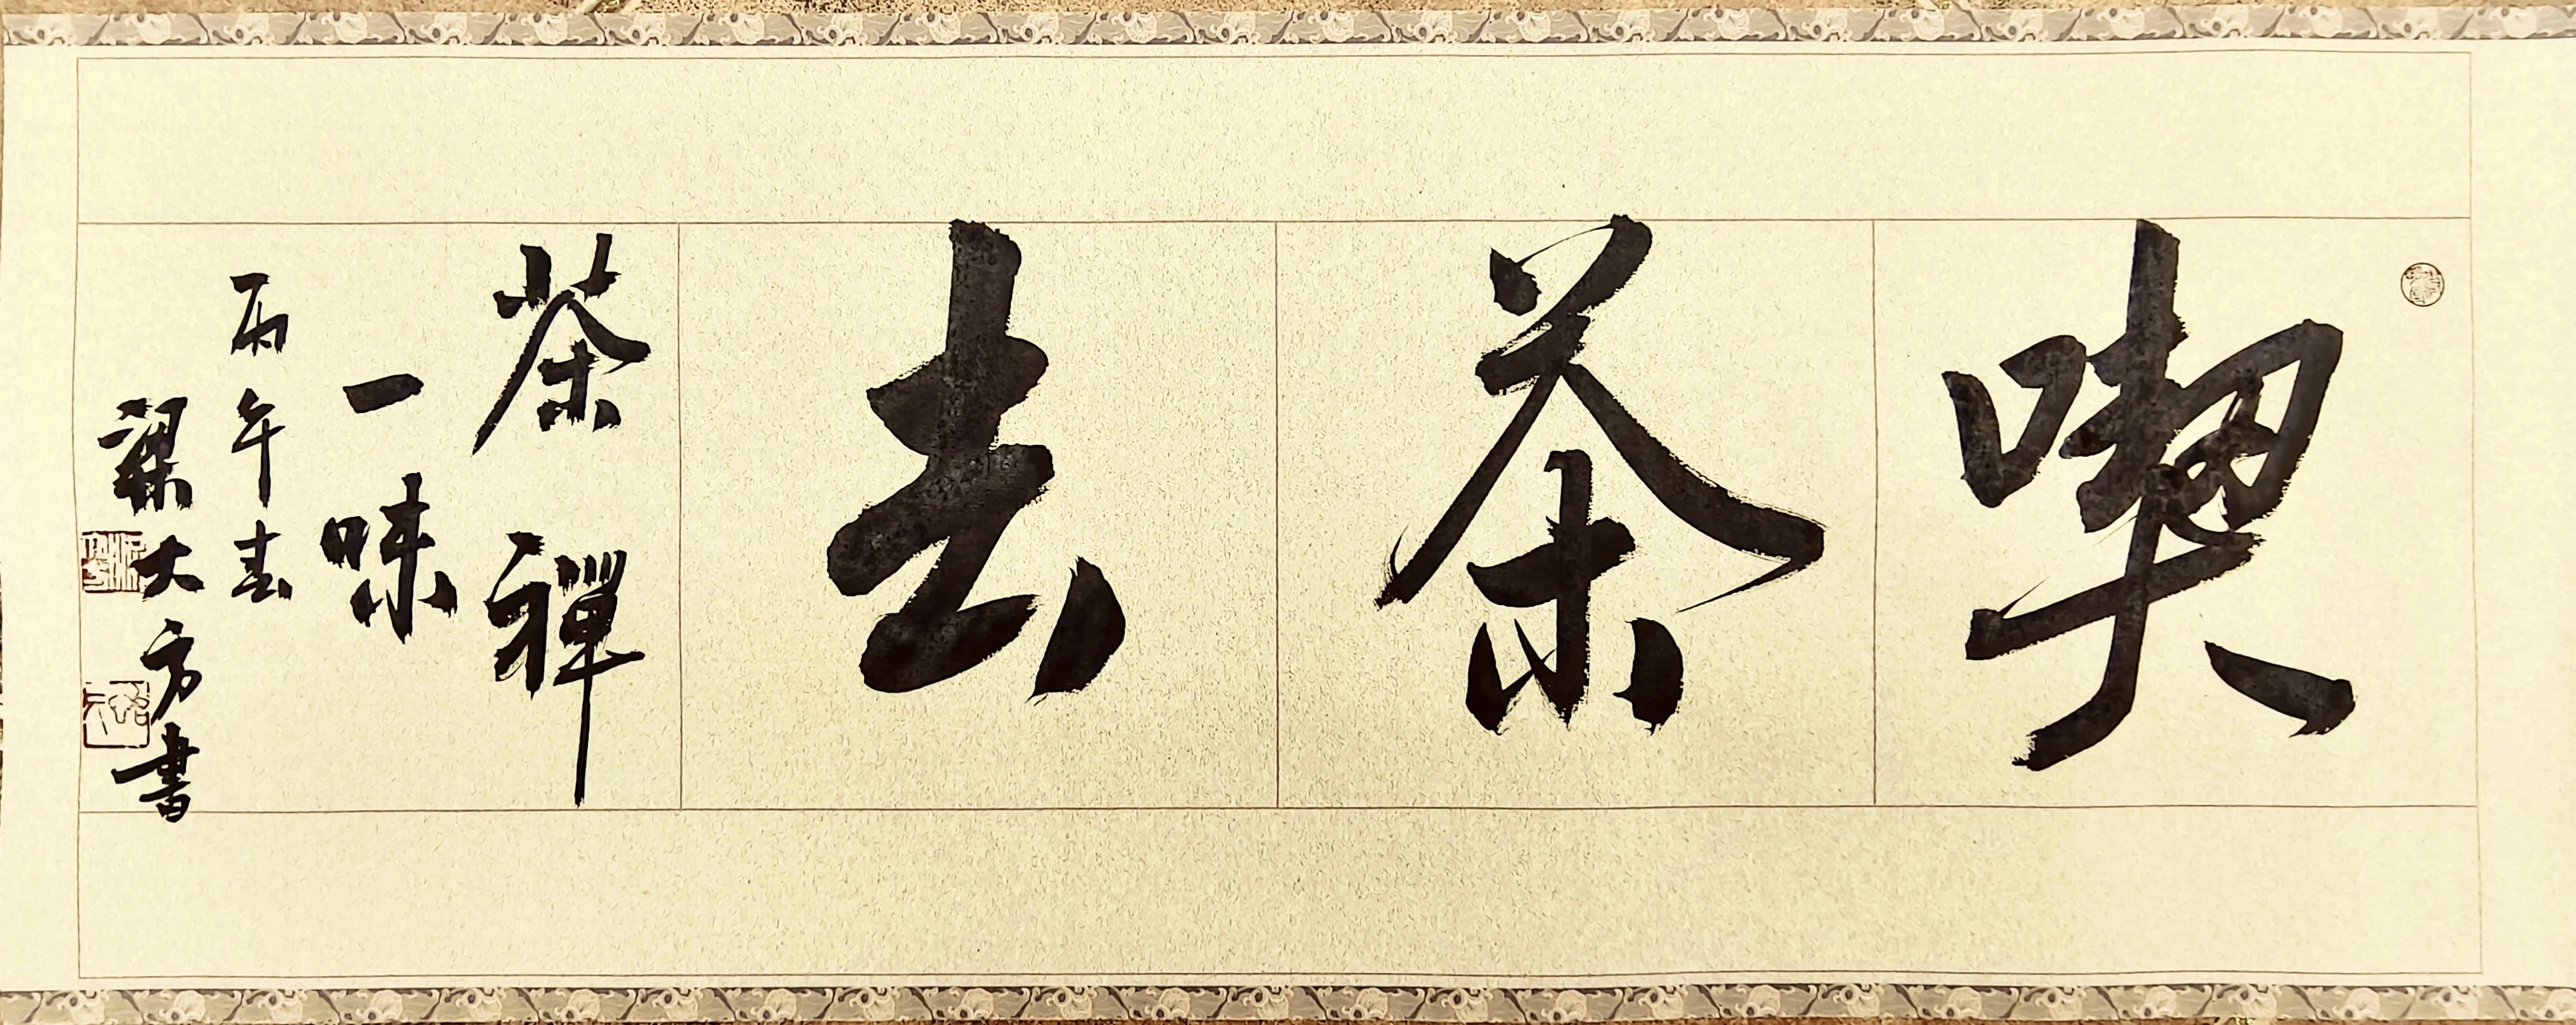 喫茶去
茶禪
一味
丙午春
梁大方書